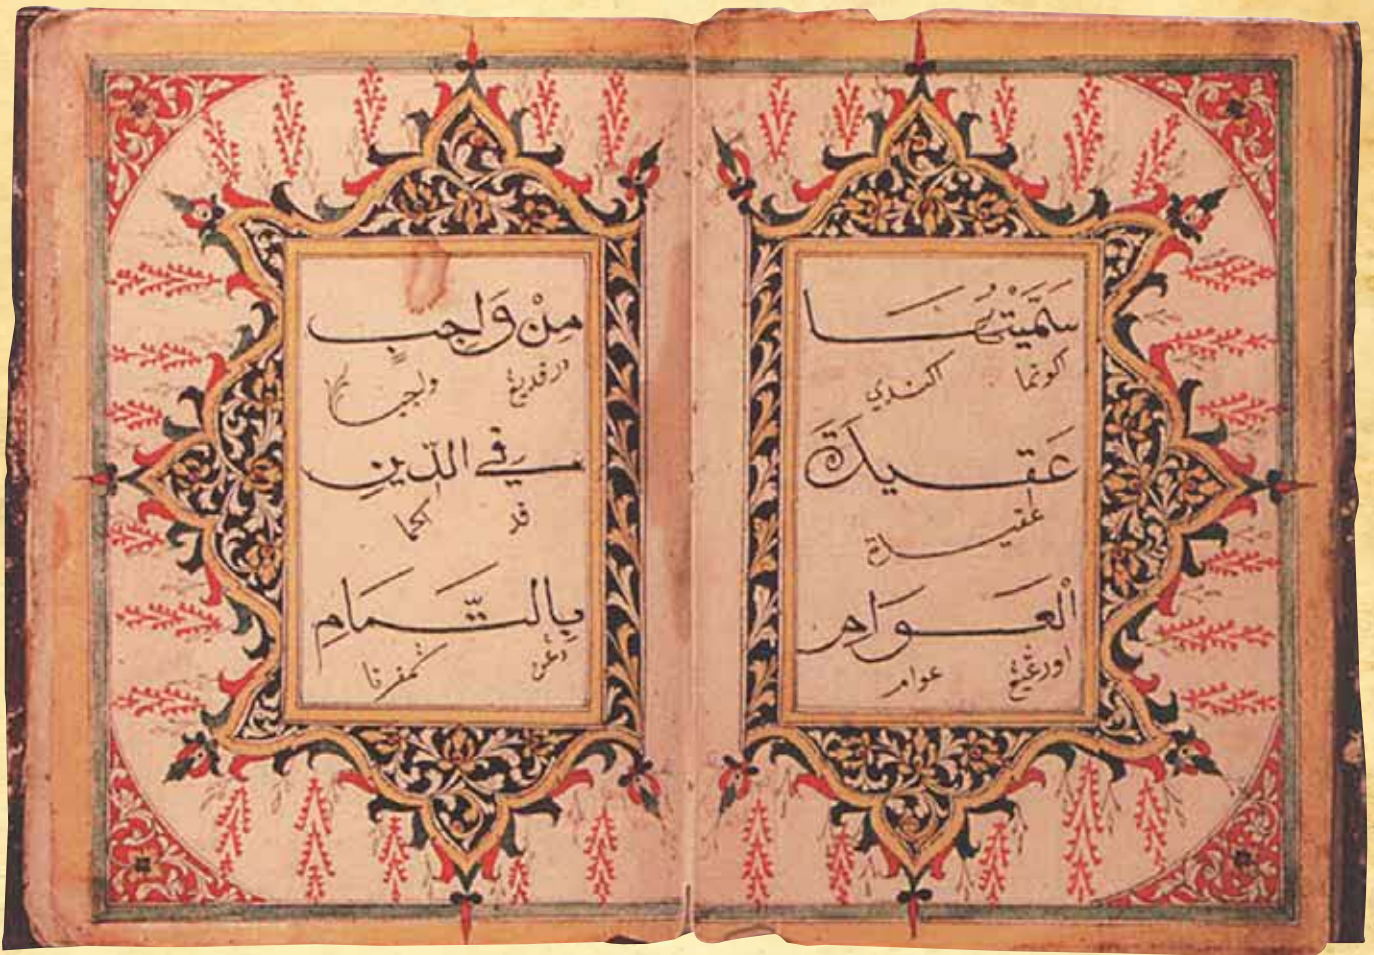 سَمَّيْتُهَا
اكونما اكندي
عَقِيدَةَ
عقيدة
الْعَوَامِ
اورڠيڠ عوام
مِنْ وَاجِبٍ
درفديڠ واجب
فِي الدِّينِ
فد اكما
بِالتَّمَامِ
دڠن سمفرنا